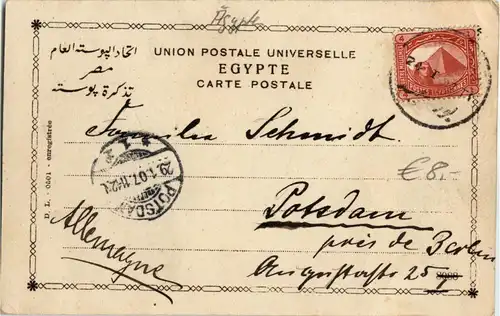 Egypte
اتحاد البوستة العام
مصر
تذكرة بوستة
UNION POSTALE UNIVERSELLE
EGYPTE
CARTE POSTALE
Familie Schmidt.
POSTSDAM
29.1.07.11-12V.
*1.
€8,-
D. L. 0501 - enregistrée
Potsdam
près de Berlin
Auguststr 25
Allemagne